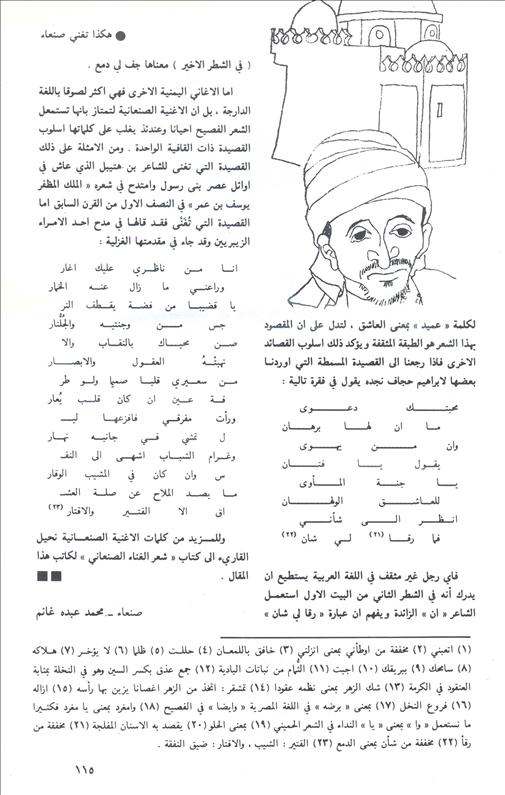 ● هكذا تغني صنعاء
لكلمة « عميد » بمعنى العاشق ، لتدل على ان المقصود
بهذا الشعر هو الطبقة المثقفة ويؤكد ذلك اسلوب القصائد
الاخرى فاذا رجعنا الى القصيدة المسمطة التي اوردنا
بعضها لابراهيم حجاف نجده يقول في فقرة تالية :
محبتك دعوى
ما ان لها برهان
وان من يهوى
يقول يا فتان
يا جنة المأوى
للعاشق الولهان
انظر الى شأني
فما رقا (٢١) لي شان (٢٢)
فاي رجل غير مثقف في اللغة العربية يستطيع ان
يدرك أنه في الشطر الثاني من البيت الاول استعمل
الشاعر « ان » الزائدة ويفهم ان عبارة « رقا لي شان »
( في الشطر الاخير ) معناها جف لي دمع .
اما الاغاني اليمنية الاخرى فهي اكثر لصوقا باللغة
الدارجة ، بل ان الاغنية الصنعانية لتمتاز بانها تستعمل
الشعر الفصيح احيانا وعندئذ يغلب على كلماتها اسلوب
القصيدة ذات القافية الواحدة . ومن الامثلة على ذلك
القصيدة التي تغنى للشاعر بن هتيبل الذي عاش في
اوائل عصر بنى رسول وامتدح في شعره « الملك المظفر
يوسف بن عمر » في النصف الاول من القرن السابع اما
القصيدة التي تُغَنَّى فقد قالها في مدح احد الامراء
الزيريين وقد جاء في مقدمتها الغزلية :
انا من ناظري عليك اغار
وراعني ما زال عنه الخمار
يا قضيبا من فضة يقطف النر
جس من وجنتيه والجُلَّنار
صن محياك بالنقاب والا
نهبتْهُ العقول والابصار
من سعيري قلبا صميا ولو طر
فة عين ان كان قلب يُعار
ورأت مفرقي فافزعها ليـ
ل تمشي في جانبيه نهار
وغرام الشباب اشهى الى النفـ
س وان كان في المشيب الوقار
ما يصد الملاح عن صلة العشـ
اق الا القتير والاقتار (٢٣)
وللمزيد من كلمات الاغنية الصنعانية نحيل
القاريء الى كتاب « شعر الغناء الصنعاني » لكاتب هذا
المقال .
صنعاء ـ محمد عبده غانم
(١) اتعبني (٢) مخففة من اوطأني بمعنى انزلني (٣) خافق باللمعان (٤) حللت (٥) ظلما (٦) لا يؤخر (٧) هلاكه
(٨) سامحك (٩) ببريقك (١٠) اجبت (١١) الثُّمام من نباتات البادية (١٢) جمع عذق بكسر السين وهو في النخلة بمثابة
العنقود في الكرمة (١٣) شك الزهر بمعنى نظمه عقودا (١٤) تمشقر : اتخذ من الزهر اغصانا يزين بها رأسه (١٥) ازاله
(١٦) فروع النخل (١٧) بمعنى « برضه » في اللغة المصرية « وايضا » في الفصيح (١٨) وامغرد بمعنى يا مغرد فكثيرا
ما نستعمل « وا » بمعنى « يا » النداء في الشعر الحميني (١٩) بمعنى الحلو (٢٠) يقصد به الاسنان المفلجة (٢١) مخففة من
رقأ (٢٢) مخففة من شأن بمعنى الدمع (٢٣) القتير : الشيب ، والاقتار : ضيق النفقة .
١١٥